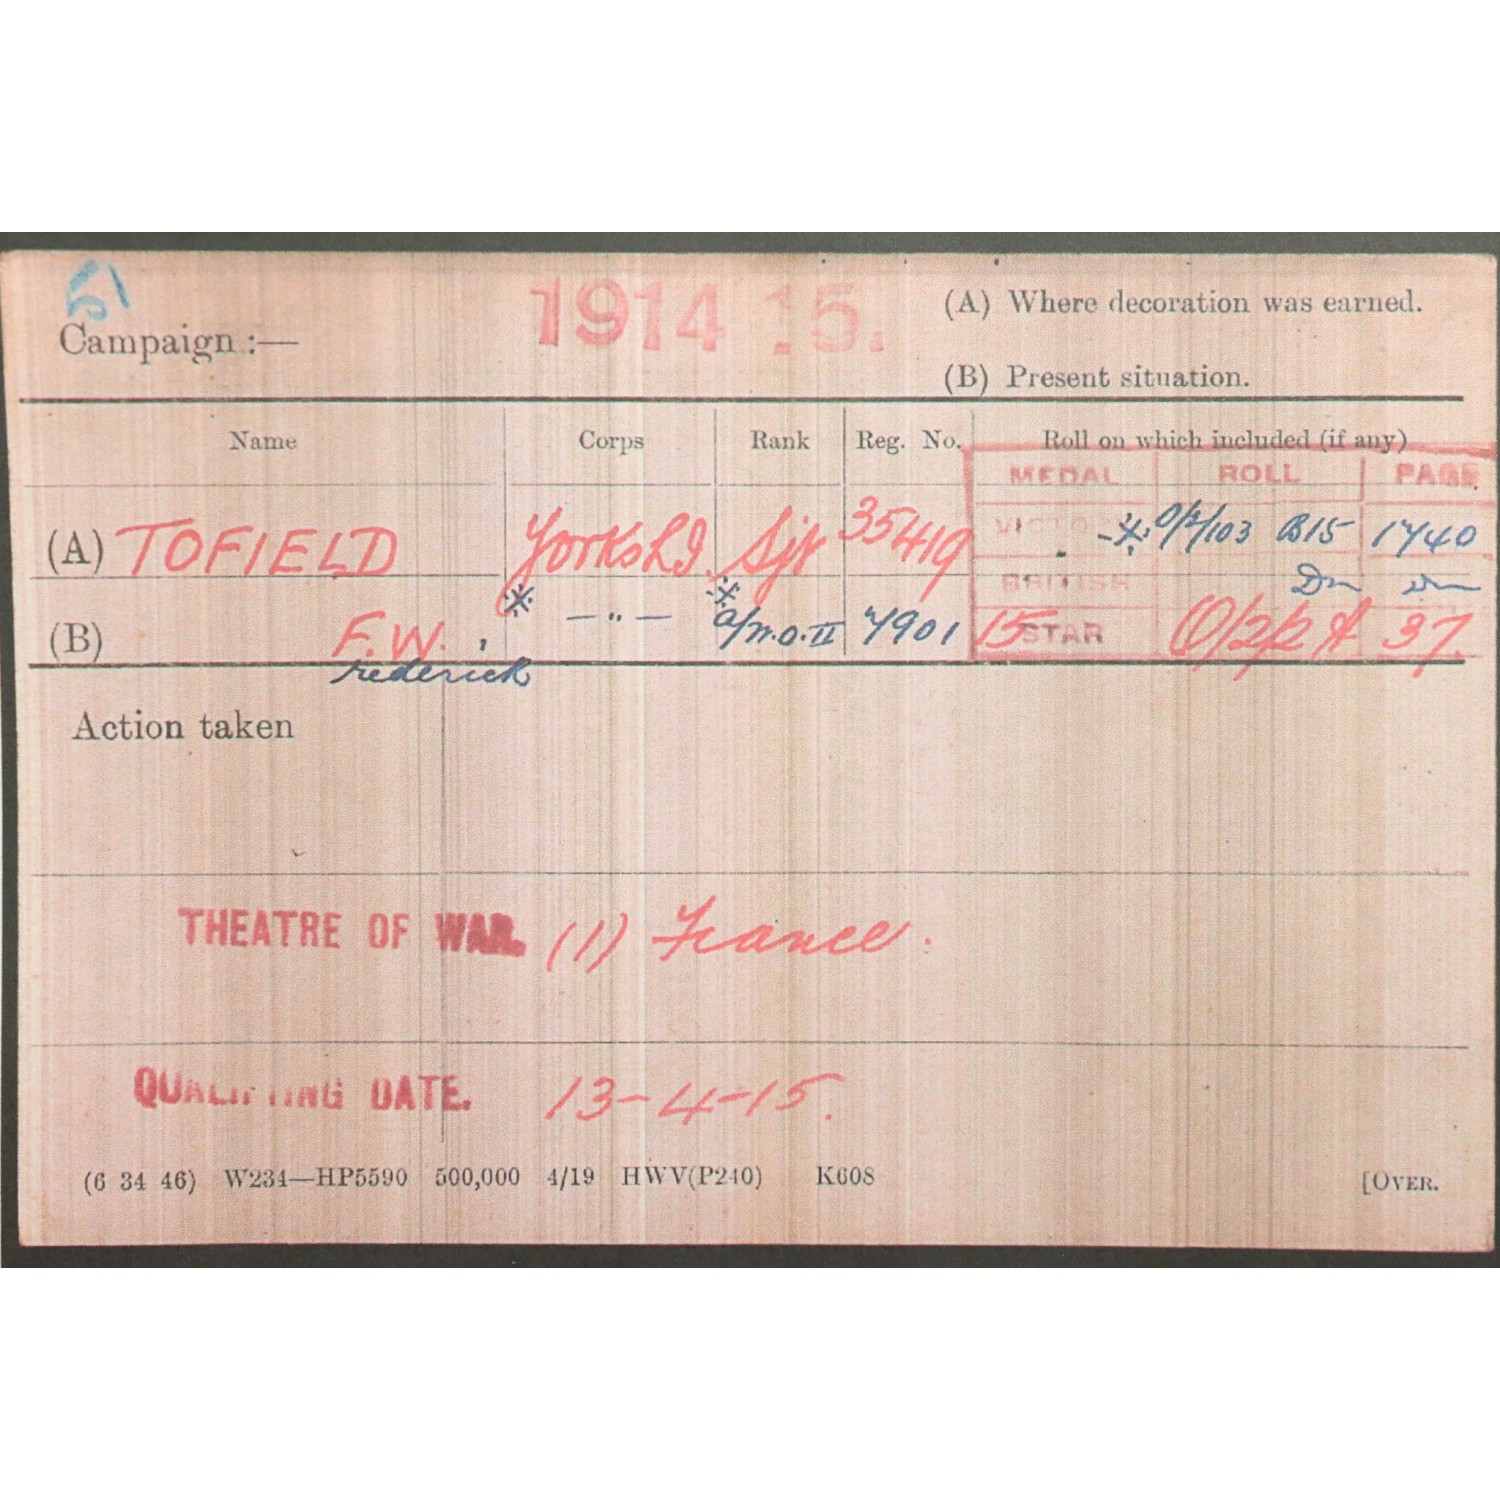 51
Campaign :— 1914 15.
(A) Where decoration was earned.
(B) Present situation.
Name Corps Rank Reg. No. Roll on which included (if any)
MEDAL ROLL PAGE
(A) TOFIELD Yorks L.I. Sjt 35419 VICTO * O/2/103 B15 1740
BRITISH Do Do
(B) F.W. * — " — * a/W.O.II 7901 15 STAR O/2/2 A 37.
rederick
Action taken
THEATRE OF WAR. (1) France.
QUALIFYING DATE. 13-4-15.
(6 34 46) W234—HP5590 500,000 4/19 HWV(P240) K608 [OVER.